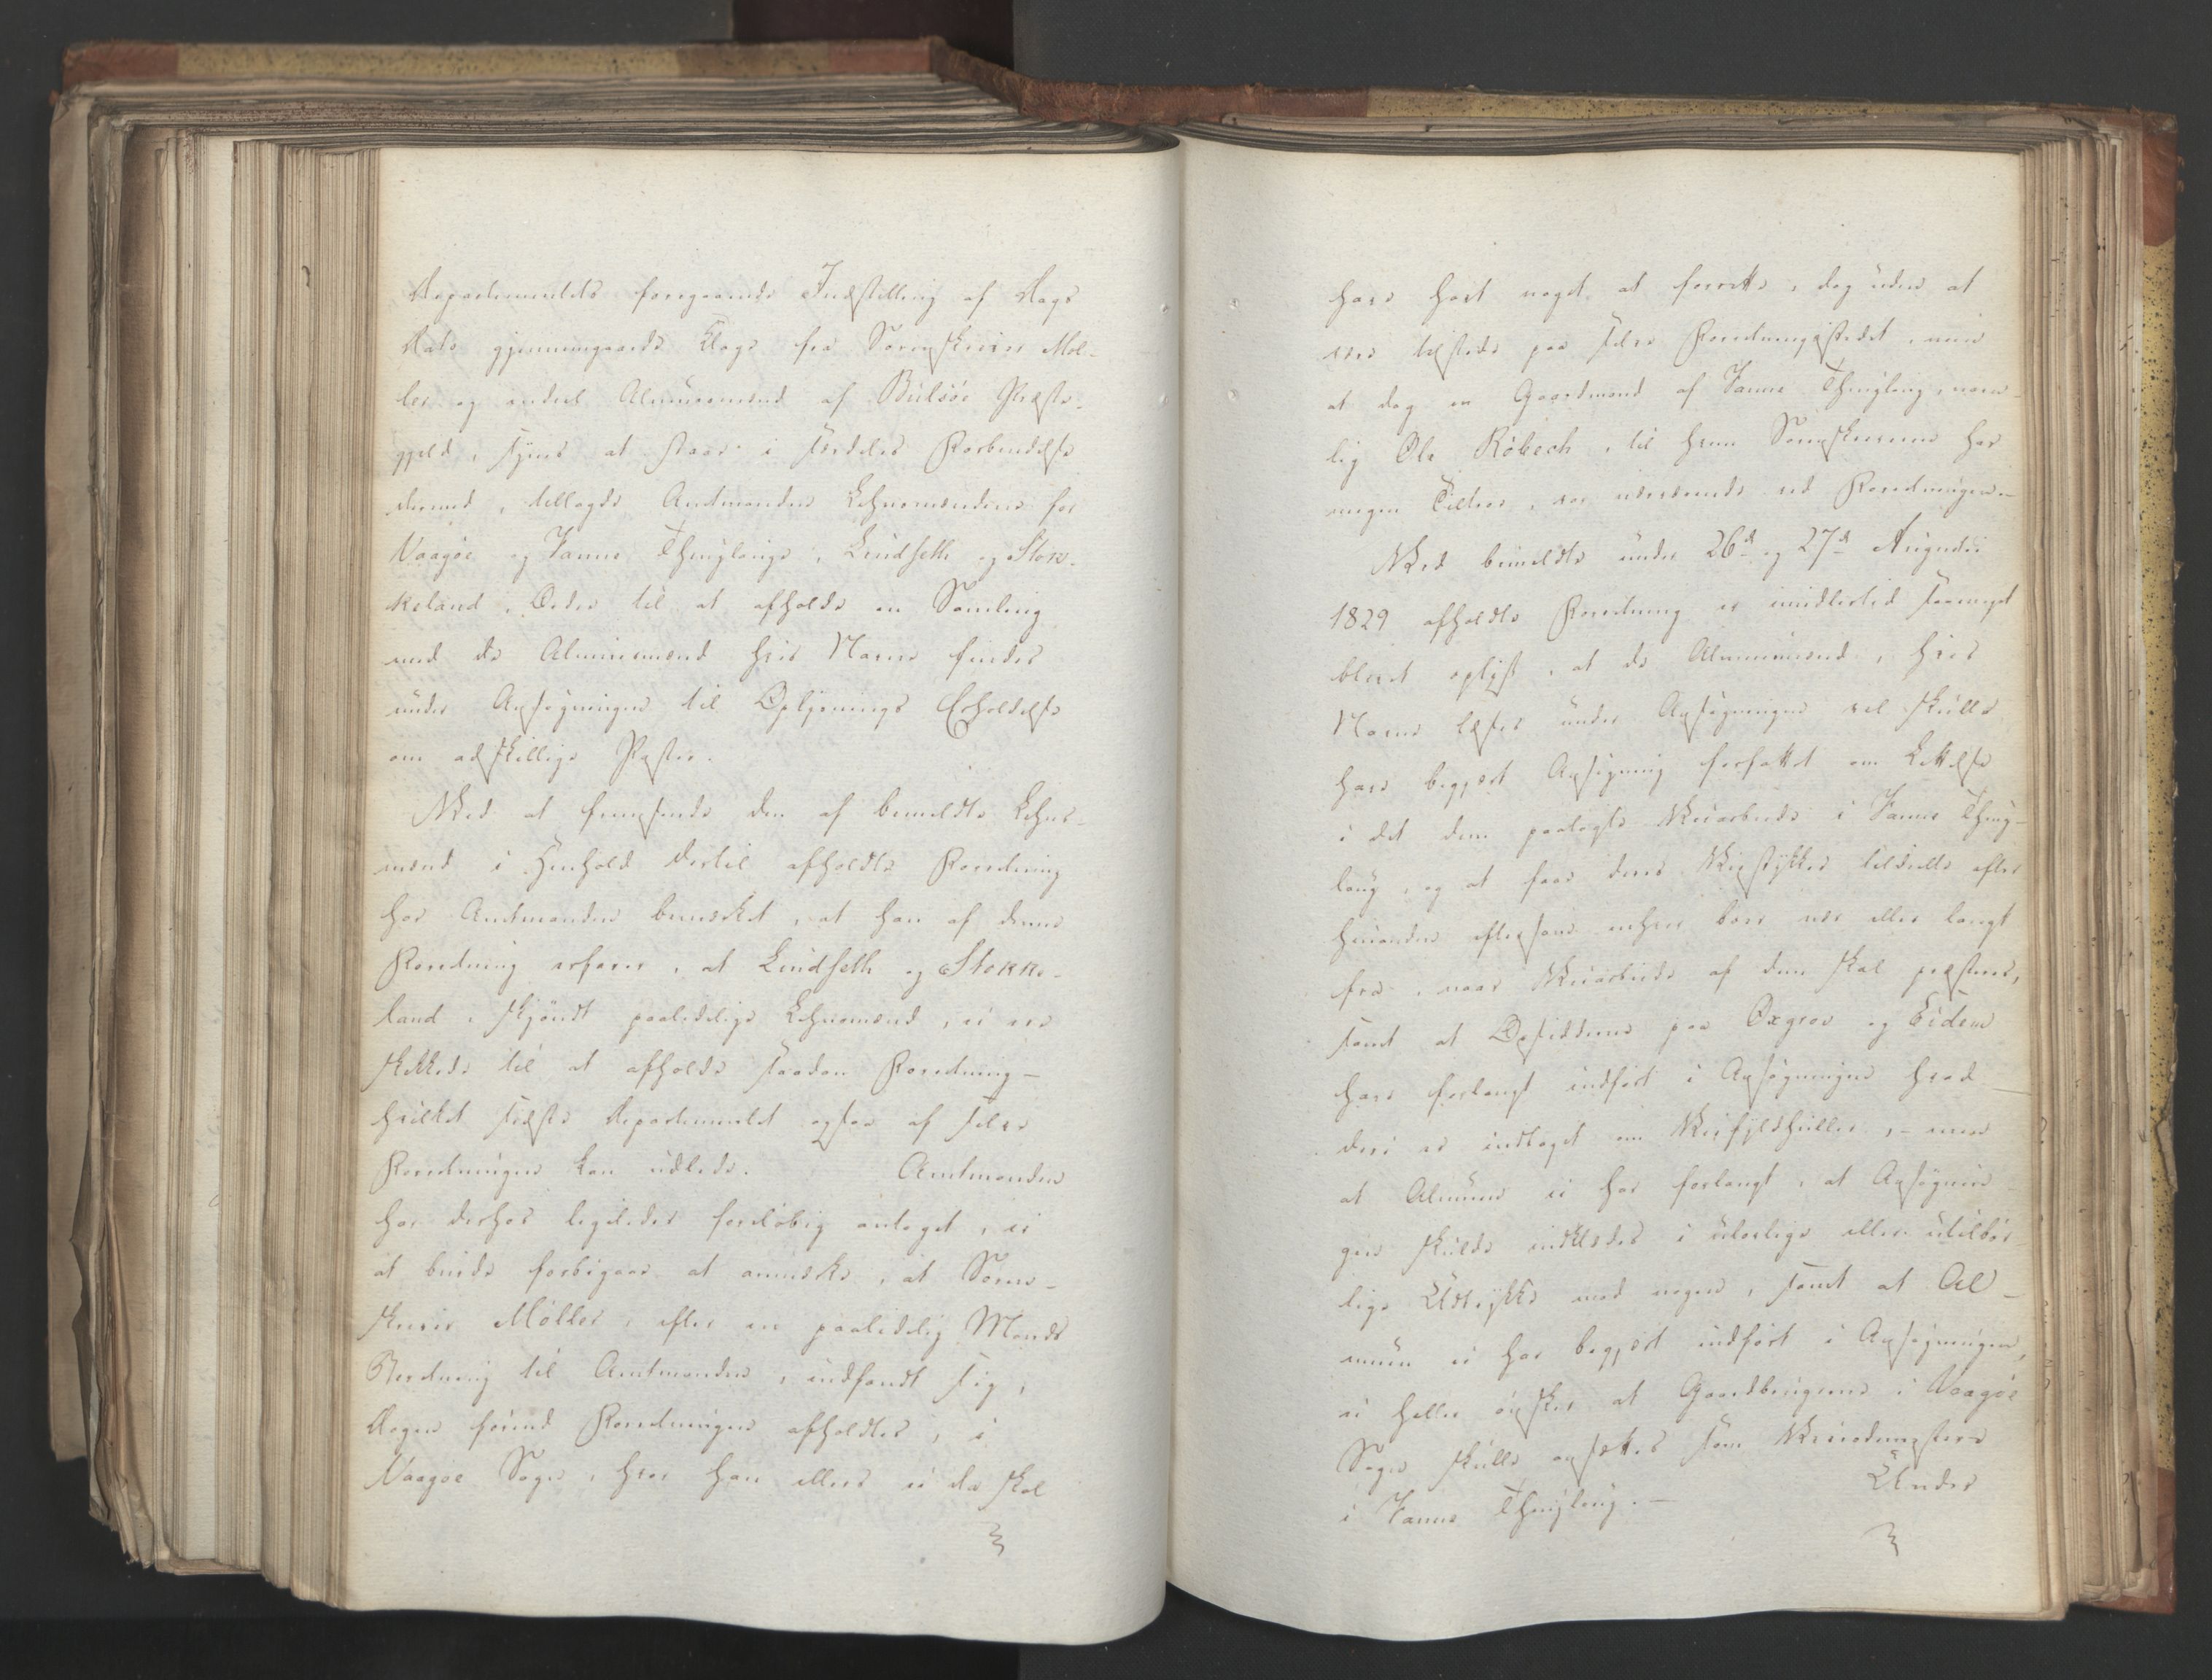 Departementets foregaaende Indstilling af Dags
Dato gjennemgaaede Klage fra Sorenskriver Møl-
ler og endeel Almuesmænd af Bolsöe Præste-
gjeld, synes at staae i særdeles Forbindelse
dermed, tillagde Amtmanden Lehnsmændene for
Vaagöe og Fanne Thinglauge, Lindseth og Stok-
keland, Ordre til at afholde en Samling
med de Almuesmænd hvis Navne findes
under Ansøgningen til Oplysnings Erholdelse
om adskillige Poster.
Ved at fremsende den af bemeldte Lehns-
mænd i Henhold dertil afholdte Forretning
har Amtmanden bemærket, at han af denne
Forretning erfarer, at Lindseth og Stokke-
land, skjöndt paalidelige Lehnsmænd, ei ere
skikkede til at afholde saadan Forretning -
hvilket sidste Departementet ogsaa af selve
Forretningen kan udlede. Amtmanden
har derhos ligeledes foreløbig antaget, ei
at burde forbigaae at anmærke, at Soren-
skriver Möller, efter en paalidelig Mands
Beretning til Amtmanden, indfandt sig,
Dagen forend Forretningen afholdtes, i
Vaagöe Sogn, hvor han ellers ei da skal
have havt noget at forrette, dog uden at
være tilstede paa selve Forretningsstedet, men
at dog en Gaardmand af Fanne Thinglaug, nem-
lig Ole Röbech, til hvem Sorenskriveren har
megen Tiltroe, var nærværende ved Forretningen. -
Ved bemeldte under 26de og 27de Augusti
1829 afholdte Forretning er imidlertid saameget
blevet oplyst, at de Almuesmænd, hvis
Navne læses under Ansøgningen vel skulle
have begjært Ansøgning forfattet om Lettelse
i det dem paalagte Veiarbeide i Fanne Thing-
laug, og at faae deres Veistykker tildeelte efter
hinanden eftersom enhver boer nær eller langt
fra, naar Veiarbeide af dem skal præsteres,
samt at Opsidderne paa Oxgrov og Eidem
have forlangt indført i Ansøgningen hvad
deri er indtaget om Veifyldhuller, - men
at Almuen ei har forlangt, at Ansøgnin-
gen skulde indklædes i ulovlige eller utilbör-
lige Udtrykke mod nogen, samt at Al-
muen ei har begjært indført i Ansøgningen,
ei heller önsker at Gaardbrugerne i Vaagöe
Sogn skulle ansættes som Veirodemestere
i Fanne Thinglaug. - Under